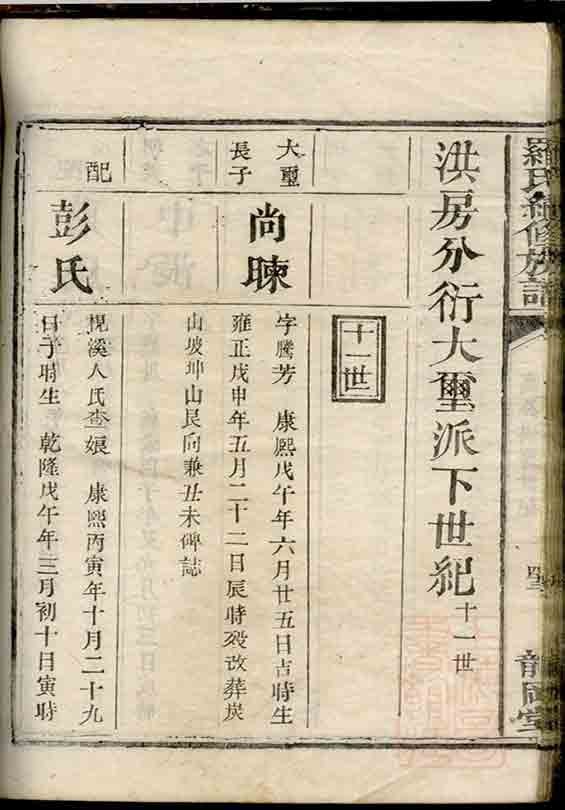 羅氏續修族譜
龍岡堂
洪房分衍大璽派下世紀 十一世
十一世
大璽長子
尚暕
字騰芳 康熙戊午年六月廿五日吉時生
雍正戊申年五月二十二日辰時歿改葬炭
山坡坤山艮向兼丑未碑誌
配
彭氏
梘溪人氏查娘 康熙丙寅年十月二十九
日子時生 乾隆戊午年三月初十日寅時